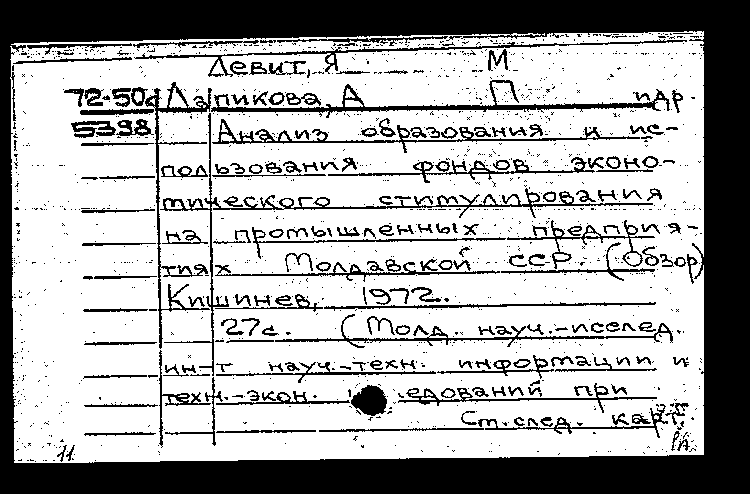 Левит, Я М
72-50д Лапикова, А П и др.
5398 Анализ образования и ис-
пользования фондов эконо-
мического стимулирования
на промышленных предприя-
тиях Молдавской ССР. (Обзор)
Кишинев, 1972.
27с. (Молд. науч.-исслед.
ин-т науч.-техн. информации и
техн.-экон. едований при
Ст.след. карт.
11